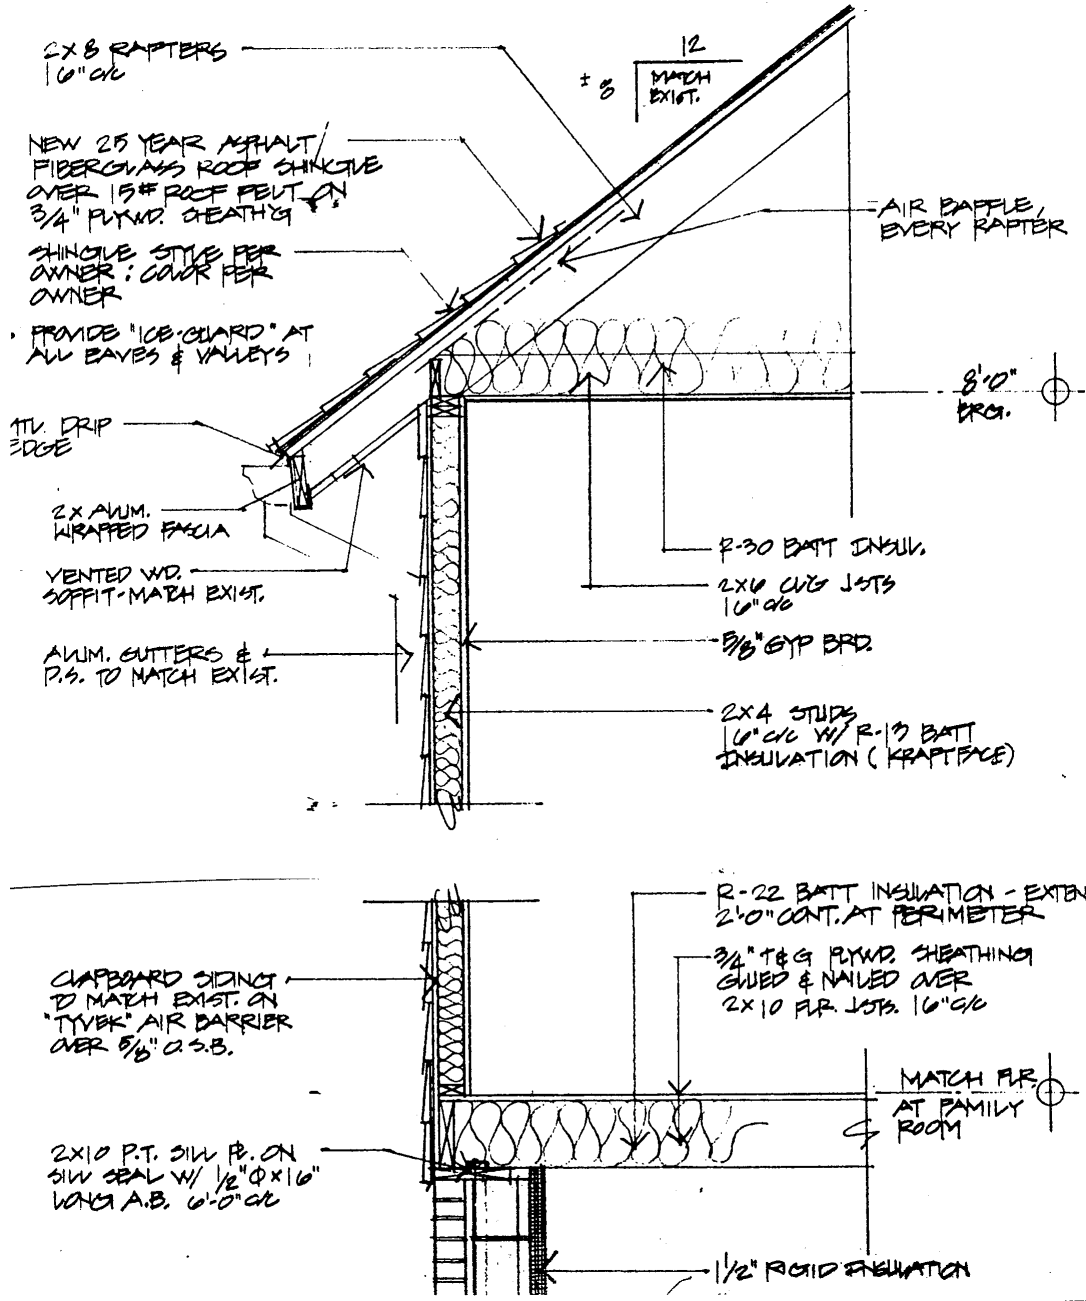 2X8 RAFTERS
16" o/c
12
± 8
MATCH
EXIST.
NEW 25 YEAR ASPHALT
FIBERGLASS ROOF SHINGLE
OVER 15# ROOF FELT ON
3/4" PLYWD. SHEATH'G
SHINGLE STYLE PER
OWNER : COLOR PER
OWNER
AIR BAFFLE,
EVERY RAFTER
PROVIDE "ICE-GUARD" AT
ALL EAVES & VALLEYS
8'-0"
BRG.
DRIP
EDGE
2X ALUM.
WRAPPED FASCIA
VENTED WD.
SOFFIT-MATCH EXIST.
R-30 BATT INSUL.
2X6 CLG JSTS
16" o/c
ALUM. GUTTERS &
D.S. TO MATCH EXIST.
5/8" GYP BRD.
2X4 STUDS
16" o/c W/ R-13 BATT
INSULATION (KRAFTFACE)
R-22 BATT INSULATION - EXTEN
2'-0" CONT. AT PERIMETER
3/4" T&G PLYWD. SHEATHING
GLUED & NAILED OVER
2X10 FLR. JSTS. 16" o/c
CLAPBOARD SIDING
TO MATCH EXIST. ON
"TYVEK" AIR BARRIER
OVER 5/8" O.S.B.
MATCH FLR.
AT FAMILY
ROOM
2X10 P.T. SILL PL. ON
SILL SEAL W/ 1/2" Φ X 16"
LONG A.B. 6'-0" o/c
1 1/2" RIGID INSULATION